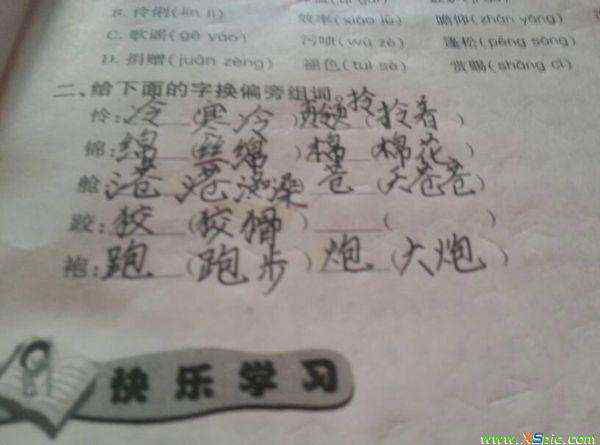 B. 伶俐(lín lì) 效率(xiào lǜ) 瞻仰(zhān yǎng)
C. 歌谣(gē yáo) (wū zé) 蓬松(péng sōng)
D. 捐赠(juān zèng) 褪色(tuì sè) 赏赐(shǎng cì)
二、给下面的字换偏旁组词。
伶:冷(寒冷) 拎(拎着)
锦:绵(丝绵)棉(棉花)
舱: 苍(天苍苍)
狡(狡猾) ( )
袍:跑(跑步)炮(大炮)
快乐学习
www.XSpic.com